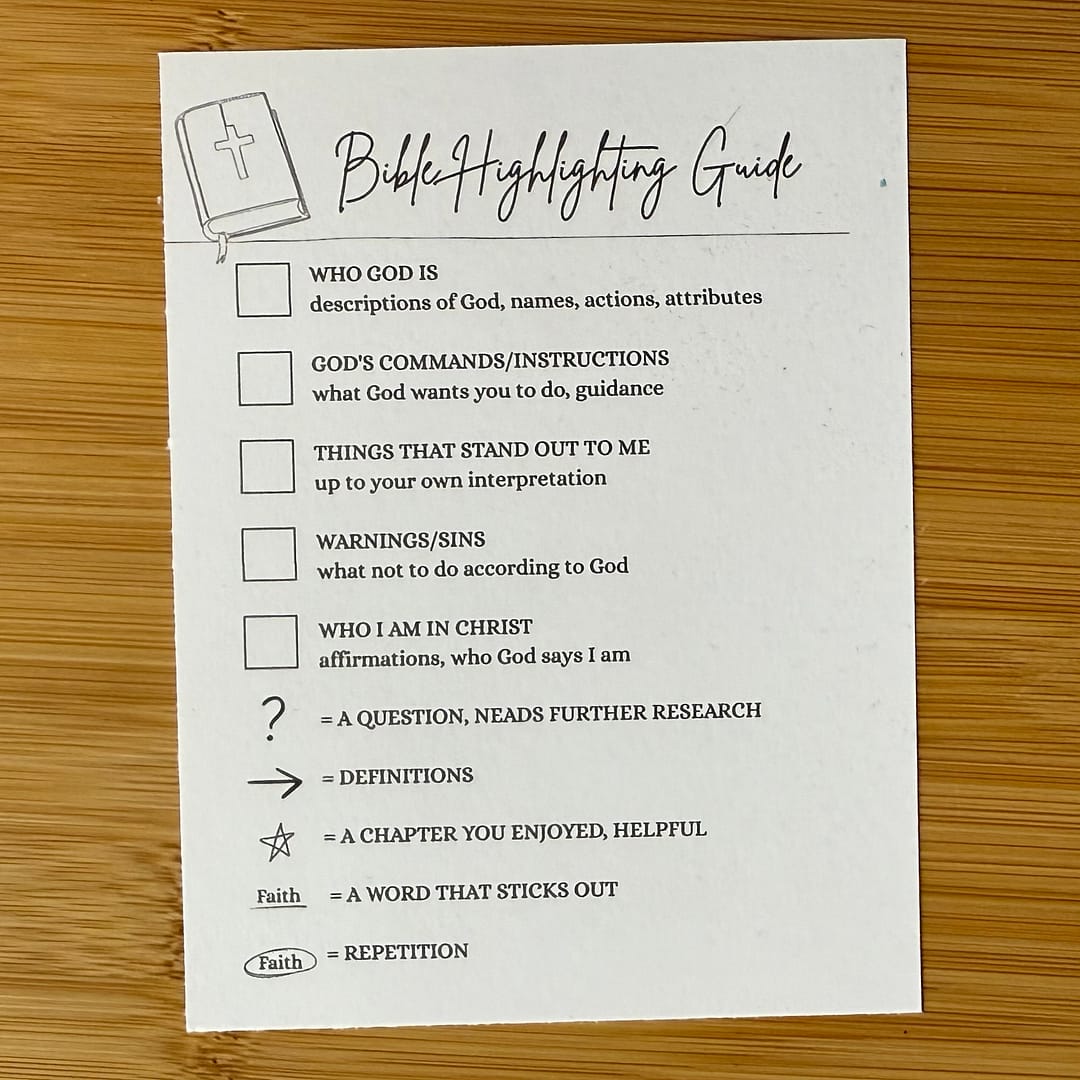 Bible Highlighting Guide
WHO GOD IS
descriptions of God, names, actions, attributes
GOD'S COMMANDS/INSTRUCTIONS
what God wants you to do, guidance
THINGS THAT STAND OUT TO ME
up to your own interpretation
WARNINGS/SINS
what not to do according to God
WHO I AM IN CHRIST
affirmations, who God says I am
? = A QUESTION, NEADS FURTHER RESEARCH
→ = DEFINITIONS
☆ = A CHAPTER YOU ENJOYED, HELPFUL
Faith = A WORD THAT STICKS OUT
Faith = REPETITION